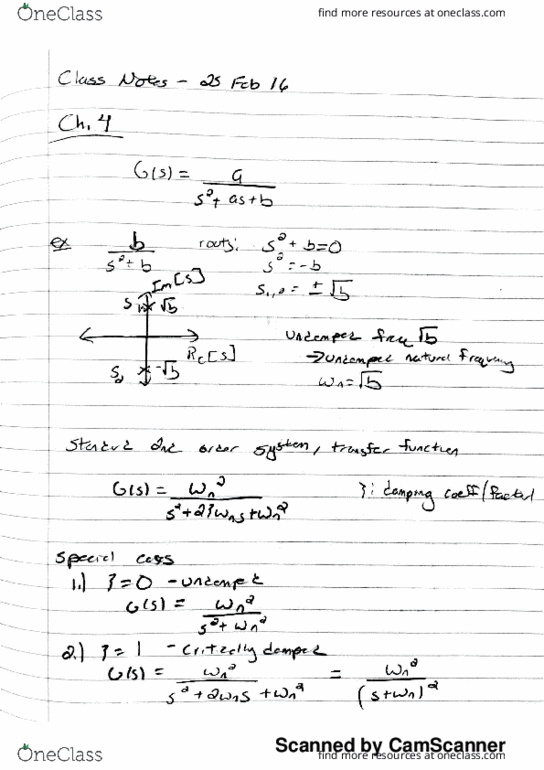 OneClass find more resources at oneclass.com
Class Notes - 25 Feb 16
Ch. 4
G(s) = a / s² + as + b
ex b / s² + b roots: s² + b = 0
s² = -b
s₁,₂ = ± √b
Im[s]
s₁ √b
Re[s]
s₂ -√b
Undamped freq √b
→ undamped natural frequency
ωn = √b
Standard 2nd order system, transfer function
G(s) = ωn² / s² + 2ζωns + ωn² ζ: damping coeff/factor
Special cases
1.) ζ = 0 - undamped
G(s) = ωn² / s² + ωn²
2.) ζ = 1 - critically damped
G(s) = ωn² / s² + 2ωns + ωn² = ωn² / (s + ωn)²
Scanned by CamScanner
OneClass find more resources at oneclass.com